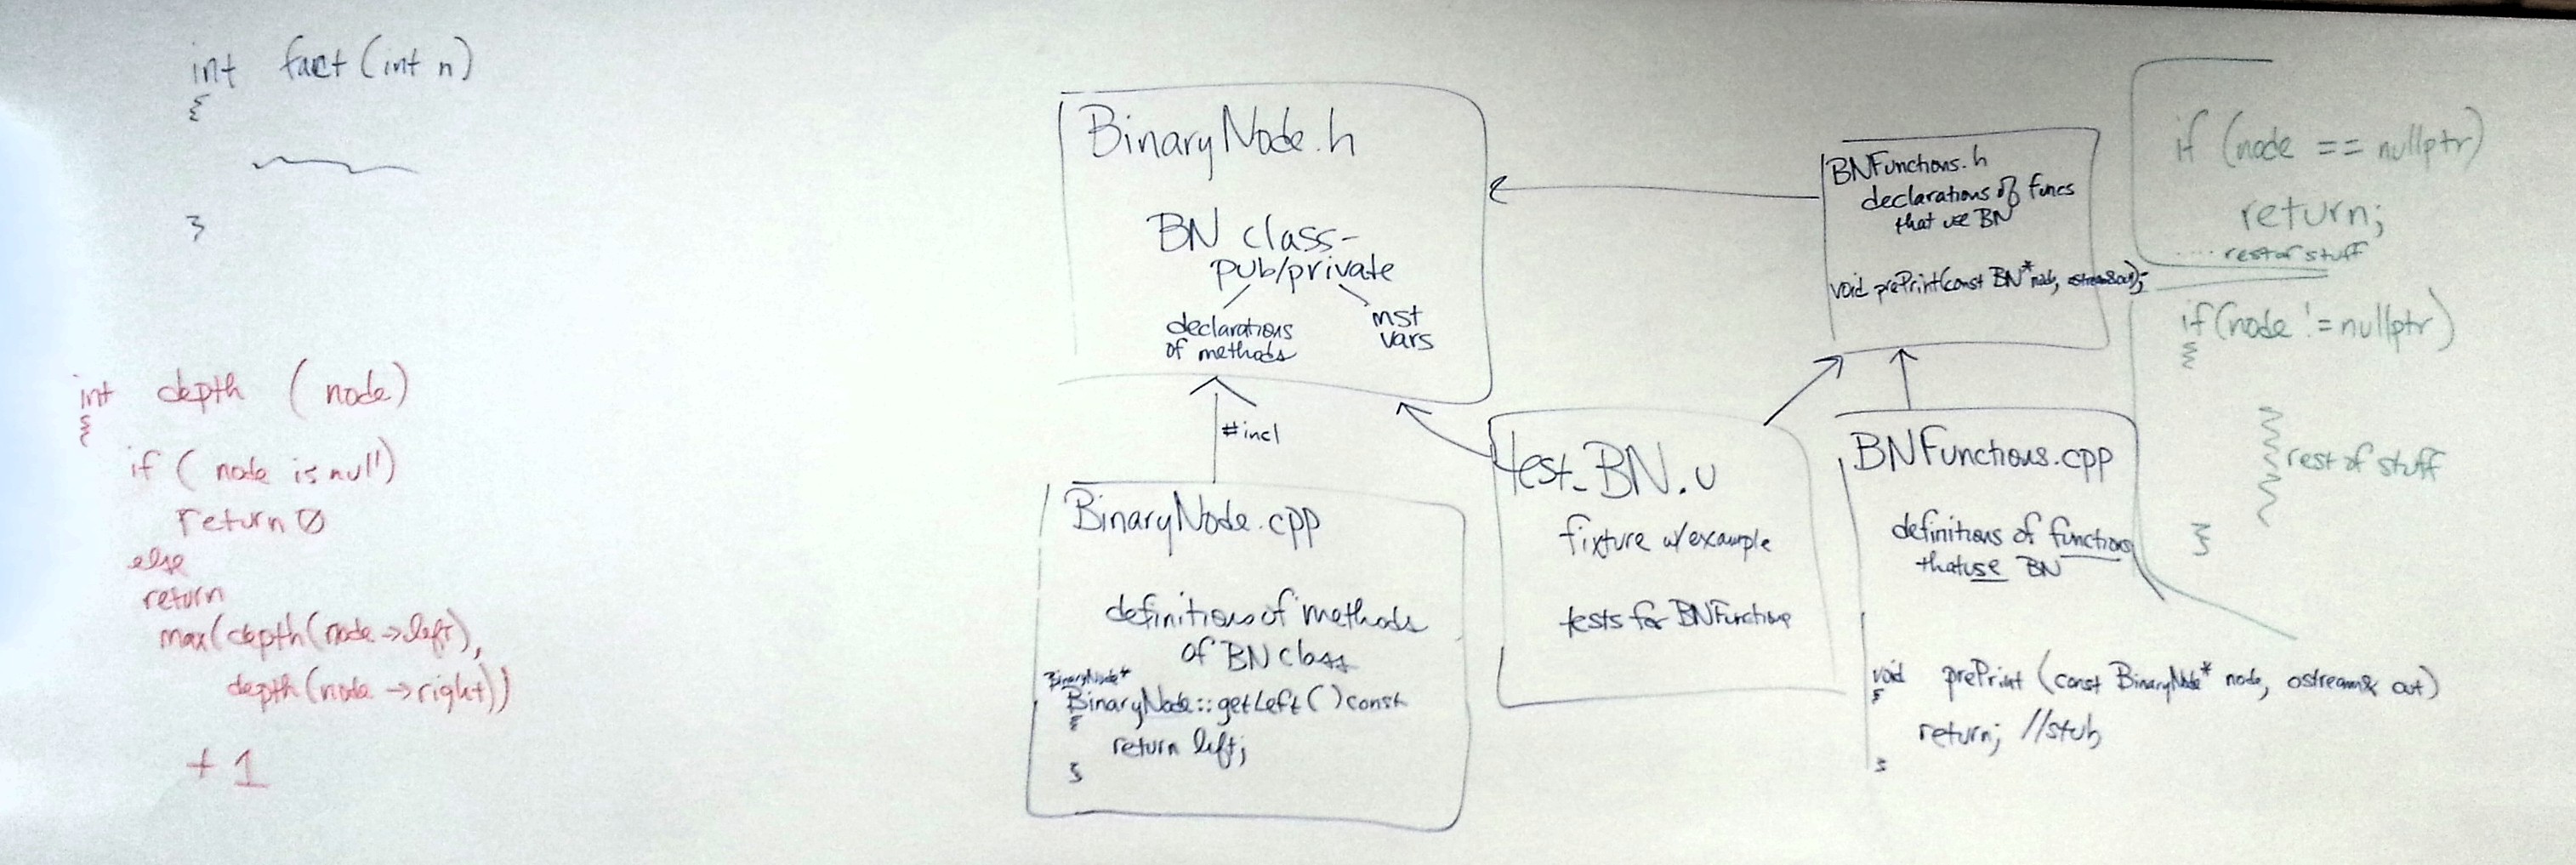 int fact(int n)
{
}
int depth (node)
{
if (node is null)
return 0
else
return
max(depth(node->left),
depth(node->right))
+ 1
BinaryNode.h
BN class-
pub/private
declarations
of methods
inst
vars
#incl
BinaryNode.cpp
definitions of methods
of BN class
BinaryNode*
BinaryNode::getLeft() const
{
return left;
}
test_BN.u
fixture w/example
tests for BNFunctions
BNFunctions.h
declarations of funcs
that use BN
void prePrint(const BN* node, ostream& out);
BNFunctions.cpp
definitions of functions
that use BN
void prePrint (const BinaryNode* node, ostream& out)
{
return; //stub
}
if (node == nullptr)
return;
.... rest of stuff
if (node != nullptr)
{
rest of stuff
}